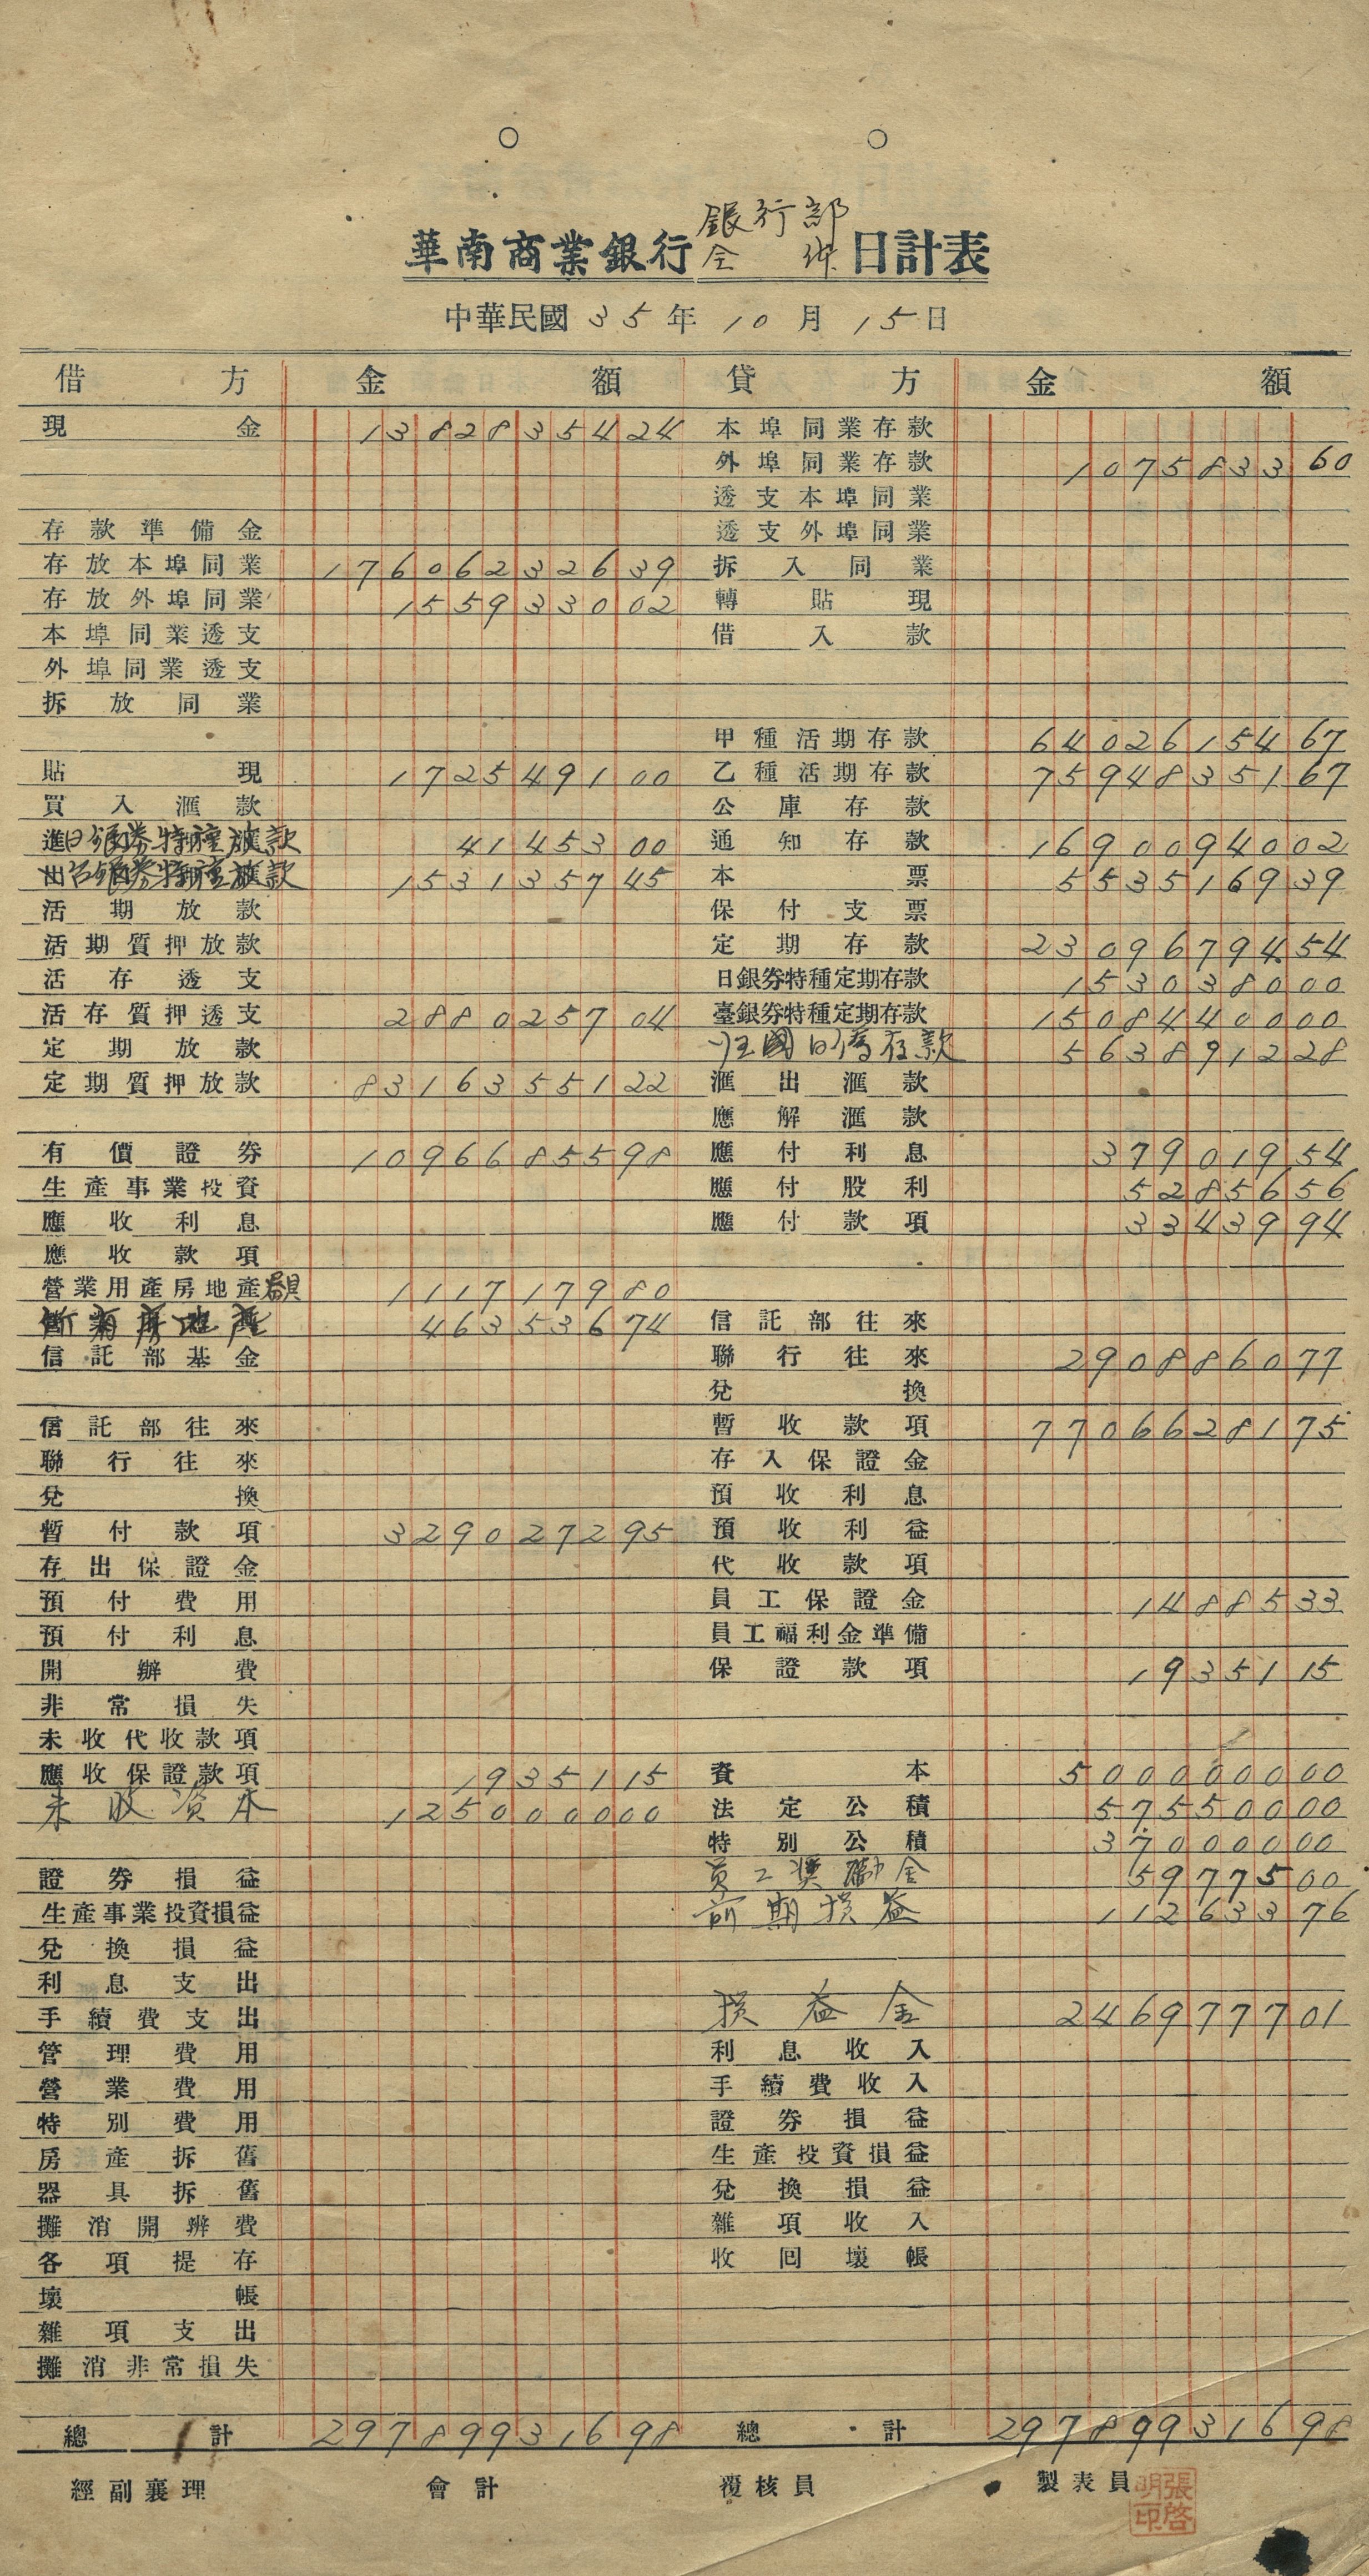 銀行部
華南商業銀行 全体 日計表
中華民國 35 年 10 月 15 日
借方 金額 貸方 金額
現金 13828354 24 本埠同業存款
外埠同業存款 1075833 60
透支本埠同業
存款準備金 透支外埠同業
存放本埠同業 176062326 39 拆入同業
存放外埠同業 1559330 02 轉貼現
本埠同業透支 借入款
外埠同業透支
拆放同業
甲種活期存款 64026154 67
貼現 1725491 00 乙種活期存款 75948351 67
買入滙款 公庫存款
日銀券特種放款 41453 00 通知存款 16900940 02
台銀券特種放款 1531357 45 本票 5535169 39
活期放款 保付支票
活期質押放款 定期存款 23096794 54
活存透支 日銀券特種定期存款 1530380 00
活存質押透支 2880257 04 臺銀券特種定期存款 15084400 00
定期放款 在國日僑存款 5638912 28
定期質押放款 83163551 22 滙出滙款
應解滙款
有價證券 10966855 98 應付利息 379019 54
生產事業投資 應付股利 52856 56
應收利息 應付款項 33439 94
應收款項
營業用產房地產器具 1117179 80
463536 74 信託部往來
信託部基金 聯行往來 2908860 77
兌換
信託部往來 暫收款項 77066281 75
聯行往來 存入保證金
兌換 預收利息
暫付款項 3290272 95 預收利益
存出保證金 代收款項
預付費用 員工保證金 14885 33
預付利息 員工福利金準備
開辦費 保證款項 19351 15
非常損失
未收代收款項
應收保證款項 19351 15 資本 5000000 00
未收資本 1250000 00 法定公積 575500 00
特別公積 370000 00
證券損益 員工奬勵金 59775 00
生產事業投資損益 前期損益 112633 76
兌換損益
利息支出
手續費支出 損益金 2469777 01
管理費用 利息收入
營業費用 手續費收入
特別費用 證券損益
房產拆舊 生產投資損益
器具拆舊 兌換損益
攤消開辦費 雜項收入
各項提存 收回壞帳
壞帳
雜項支出
攤消非常損失
總計 297899316 98 總計 297899316 98
經副襄理 會計 覆核員 製表員 張啓明印